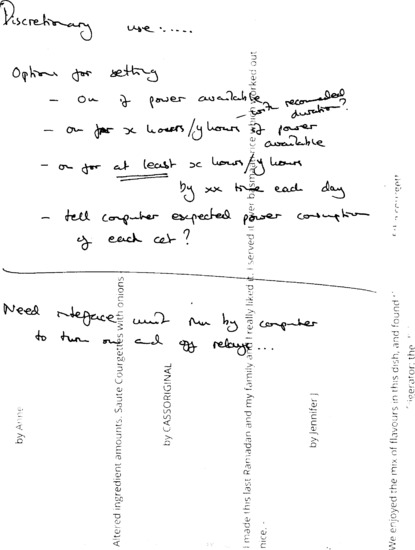 Discretionary use:.....
Options for setting
- On if power available
- with recommended duration?
- on for x hours/y hours if power available
- on for at least x hours/y hours
by xx time each day
- tell computer expected power consumption
of each cct?
Need interface unit run by computer
to turn on and off relays...
by Anne
Altered ingredient amounts. Saute Courgettes with onions
by CASSORIGINAL
I made this last Ramadan and my family and I really liked it. I served it over basmati rice which worked out
nice. -
by Jennifer J
We enjoyed the mix of flavours in this dish, and found
igerator; the